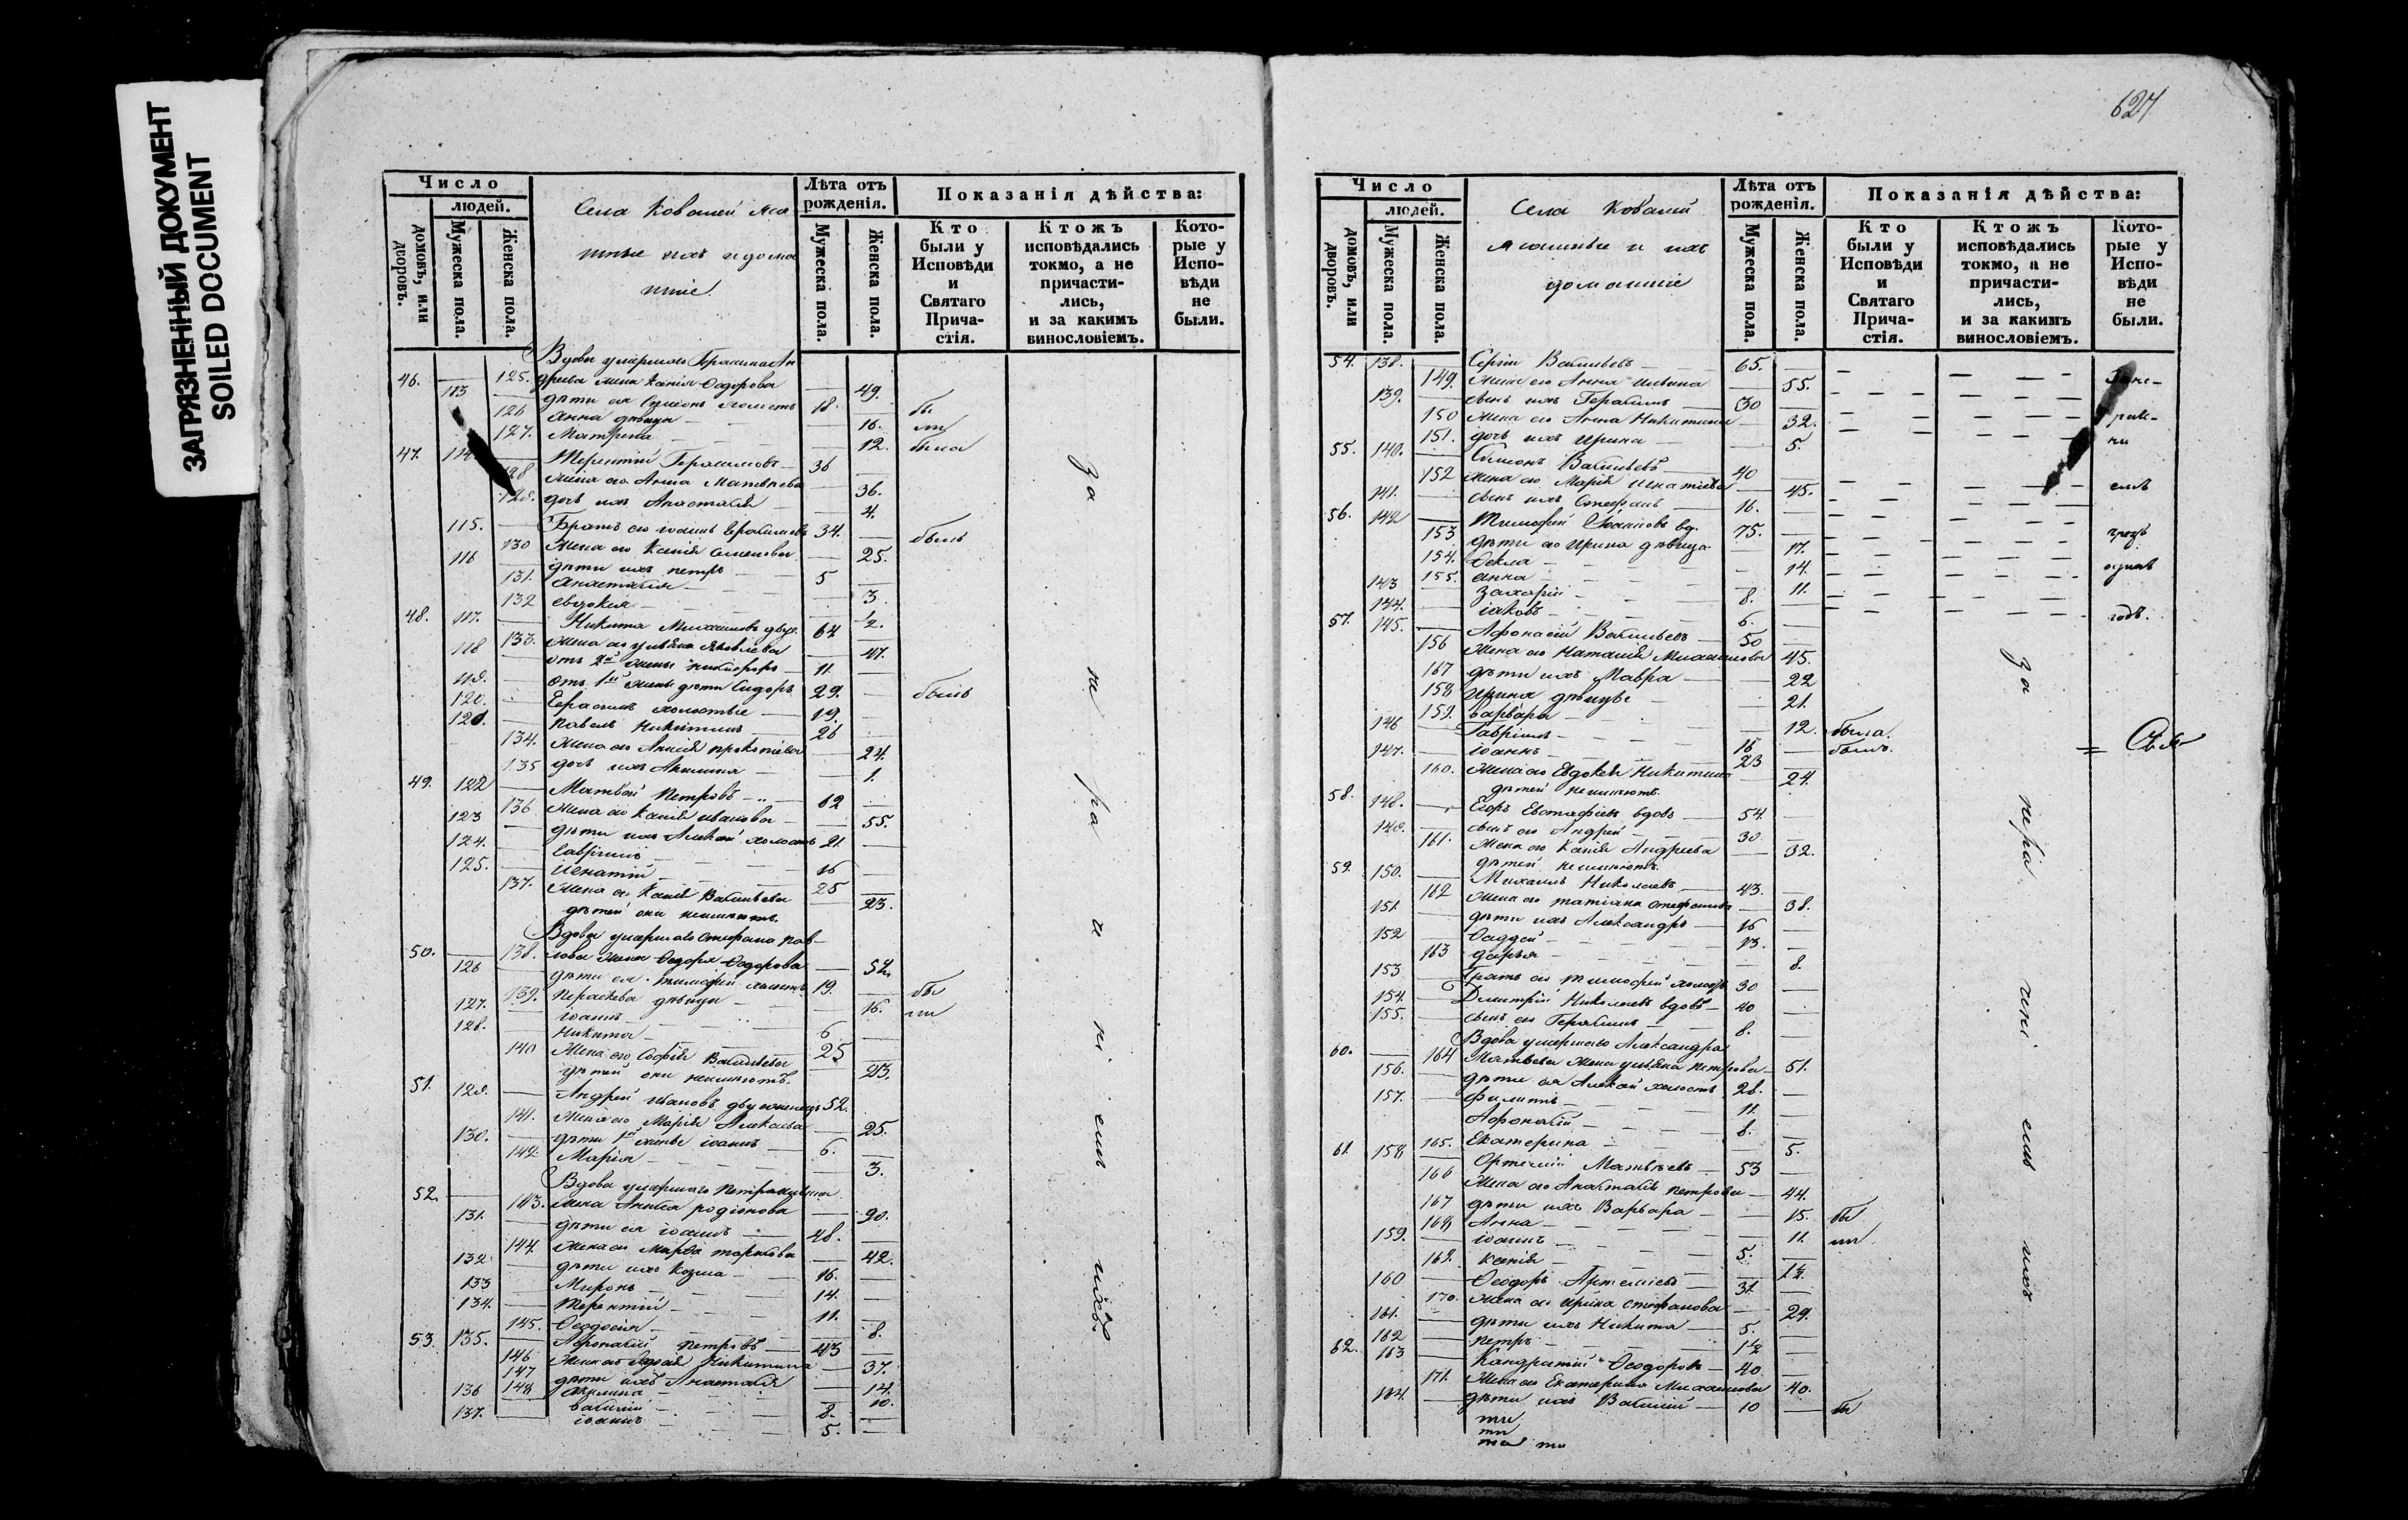 ЗАГРЯЗНЕННЫЙ ДОКУМЕНТ
SOILED DOCUMENT
Число
людей.
домовъ, или дворовъ.
Мужеска пола.
Женска пола.
Лѣта отъ рожденія.
Мужеска пола.
Женска пола.
Показанія дѣйства:
Кто были у Исповѣди и Святаго Прича- стія.
Ктожъ исповѣдались токмо, а не причасти- лись, и за какимъ винословіемъ.
Кото- рые у Испо- вѣди не были.
Вдова умершаго Герасима Ан
46. 125. дреева жена Ксенія Феодорова 49.
113 дѣти ея Симеонъ холостъ 18. бы
126 Анна дѣвица 16. ли
127. Матрена 12. была
47. 114 Терентій Герасимовъ 36
128 жена его Анна Матвѣева 36.
129. дочь ихъ Анастасія 4.
115. Братъ его Іоаннъ Герасимовъ 34. былъ
130 жена его Ксенія Семенова 25.
116 дѣти ихъ Петръ 5
131. Анастасія 3.
132 Евдокія 1/2.
48. 117. Никита Михаиловъ двуж. 64
133. жена его Ульяна Яковлева 47.
118 отъ 2й жены Никифоръ 11.
119. отъ 1й жены дѣти Сидоръ 29. былъ
120. Герасимъ холостые 19.
121. Павелъ Никитинъ 26
134. жена его Анисія Прокопіева 24.
135 дочь ихъ Акилина 1.
49. 122 Матвѣй Петровъ 62
136 жена его Ксенія Иванова 55.
123 дѣти ихъ Алексѣй холостъ 21.
124. Гавріилъ 16
125. Игнатій 25
137. жена его Ксенія Васильева 23.
дѣтей они неимѣютъ.
Вдова умершаго Стефана Пав-
50. 138. лова жена Феодора Феодорова 54.
126 дѣти ея Тимофей холостъ 19. бы
139. Параскева дѣвица 16. ли
127. Іоаннъ 6
128. Никита 25
140 жена его Софія Васильева 23.
дѣтей они неимѣютъ.
51. 129. Андрей Ивановъ двуженецъ 52.
141. жена его Марія Алексѣева 25.
130. дѣти 1й жены Іоаннъ 6.
142. Марія 3.
52. Вдова умершаго Петра
143. жена Анисія Родіонова 90.
131. дѣти ея Іоаннъ 48.
144. жена его Марфа 42.
132 дѣти ихъ Козма 16.
133 Миронъ 14.
134. Терентій 11.
145. Феодосія 8.
53. 135. Афонасій Петровъ 43
146 жена его Никитина 37.
147 дѣти ихъ Анастасія 14.
148 Акилина 10.
136 Василій 8.
137. Іоаннъ 5.
за не ра и ні емъ ихъ.
627
Число
людей.
домовъ, или дворовъ.
Мужеска пола.
Женска пола.
Села Ковалей
жители и ихъ
домашніе
Лѣта отъ рожденія.
Мужеска пола.
Женска пола.
Показанія дѣйства:
Кто были у Исповѣди и Святаго Прича- стія.
Ктожъ исповѣдались токмо, а не причасти- лись, и за какимъ винословіемъ.
Кото- рые у Испо- вѣди не были.
54. 138. Сергій Васильевъ 65.
149. жена его Анна Ильина 55.
139. сынъ ихъ Герасимъ 30
150 жена его Анна Никитина 32.
151. дочь ихъ Ирина 5.
55. 140. Симеонъ Васильевъ 40
152 жена его Марія Игнатіева 45.
141. сынъ ихъ Стефанъ 16.
56. 142 Тимофей Іоанновъ вд. 75.
153 дѣти его Ирина дѣвица 17.
154. Фекла 14.
155. Анна 11.
143 Захарій 8.
144. Іаковъ 6.
57. 145. Афонасій Васильевъ 50
156 жена его Наталія Михаилова 45.
157 дѣти ихъ Мавра 22
158 Ирина дѣвицы 21.
159. Варвара 12. была.
146 Гавріилъ 16 былъ.
147. Іоаннъ 23
160. жена его Евдокія Никитина 24.
дѣтей неимѣютъ.
58. 148. Егоръ Евстафіевъ вдовъ 54.
149. сынъ его Андрей 30
161. жена его Ксенія Андреева 32.
дѣтей неимѣютъ.
59. 150. Михаилъ Николаевъ 43.
162 жена его Татіана Стефанова 38.
151. дѣти ихъ Александръ 16
152 Фаддей 13.
163 Дарья 8.
153 Братъ его Тимофей холостъ 30
154. Димитрій Николаевъ вдовъ 40
155. сынъ его Герасимъ 8.
Вдова умершаго Александра
60. 164 Матвѣева жена Ульяна Петрова 51.
156. дѣти ея Алексѣй холостъ 28.
157. Филиппъ 11.
Афонасій 8.
165. Екатерина 5.
61. 158 Артемій Матвѣевъ 53
166 жена его Анастасія Петрова 44.
167 дѣти ихъ Варвара 15. бы
168 Анна 11. ли
159. Іоаннъ 5.
169. Ксенія 1 1/2.
160 Феодоръ Артеміевъ 31.
170. жена его Ирина Стефанова 29.
161. дѣти ихъ Никита 5.
162 Петръ 1 1/2
62. 163 Кандратій Феодоровъ 40
171. жена его Екатерина Михаилова 40.
164. дѣти ихъ Василій 10 бы